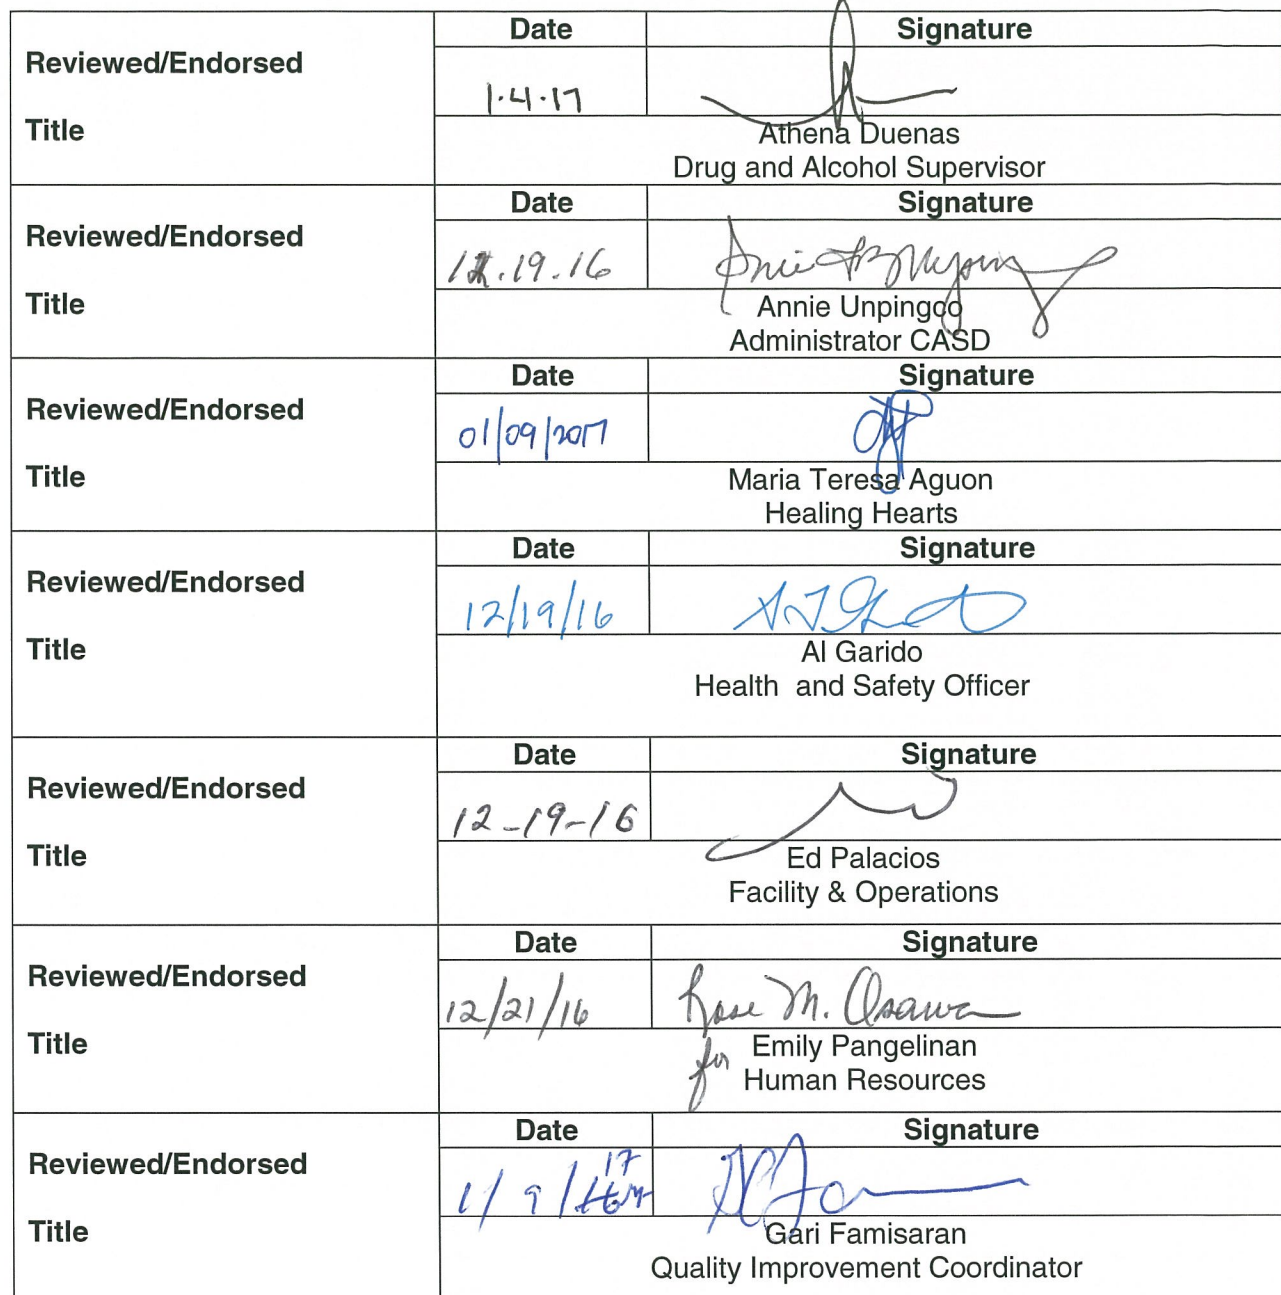 Date Signature
Reviewed/Endorsed
1.4.17
Title
Athena Duenas
Drug and Alcohol Supervisor
Date Signature
Reviewed/Endorsed
12.19.16
Title
Annie Unpingco
Administrator CASD
Date Signature
Reviewed/Endorsed
01/09/2017
Title
Maria Teresa Aguon
Healing Hearts
Date Signature
Reviewed/Endorsed
12/19/16
Title
Al Garido
Health and Safety Officer
Date Signature
Reviewed/Endorsed
12-19-16
Title
Ed Palacios
Facility & Operations
Date Signature
Reviewed/Endorsed
12/21/16 Rose M. Osawa
Title
for Emily Pangelinan
Human Resources
Date Signature
Reviewed/Endorsed
1/9/17
Title
Gari Famisaran
Quality Improvement Coordinator